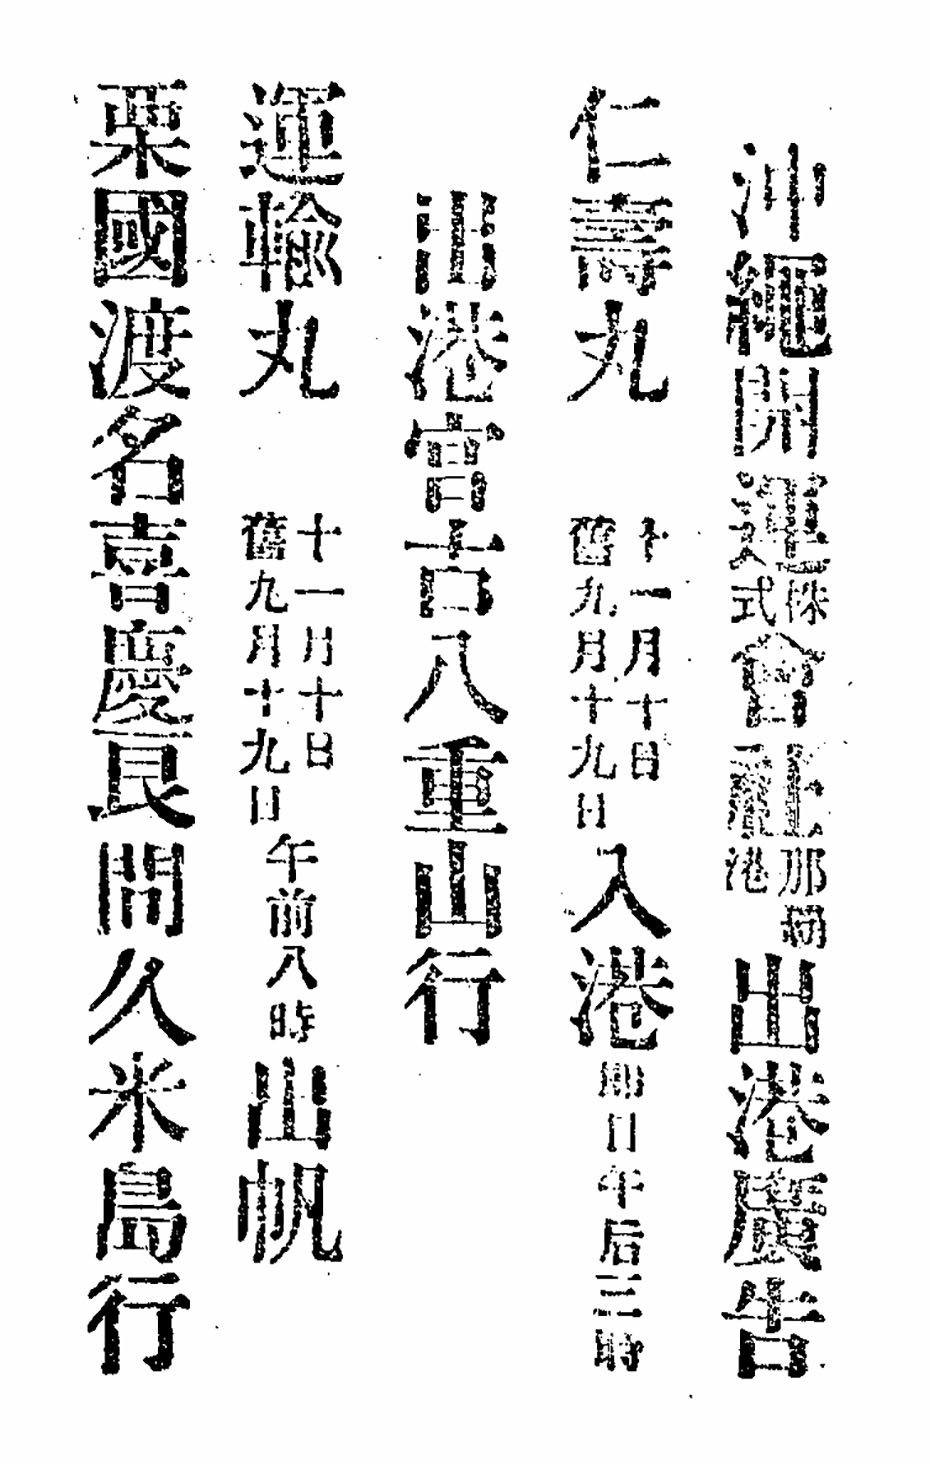 沖繩開運株式會社那覇港出港廣告
仁壽丸 十一月十日 舊九月十九日 入港 即日午后三時
出港宮古八重山行
運輸丸 十一月十日 舊九月十九日 午前八時 出帆
粟國渡名喜慶良間久米島行